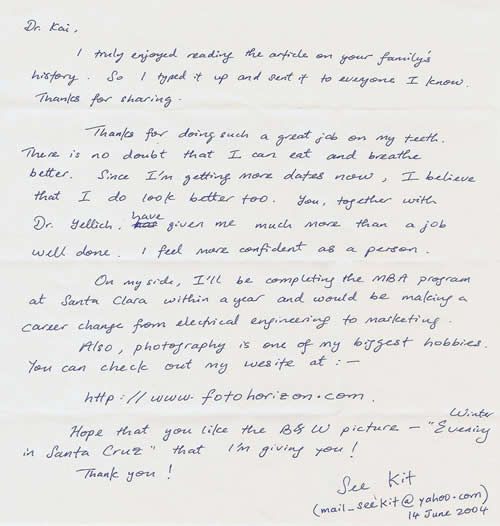 Dr. Kai,
I truly enjoyed reading the article on your family's
history. So I typed it up and sent it to everyone I know.
Thanks for sharing.
Thanks for doing such a great job on my teeth.
There is no doubt that I can eat and breathe
better. Since I'm getting more dates now, I believe
that I do look better too. You, together with
Dr. Yellich, have given me much more than a job
well done. I feel more confident as a person.
On my side, I'll be completing the MBA program
at Santa Clara within a year and would be making a
career change from electrical engineering to marketing.
Also, photography is one of my biggest hobbies.
You can check out my wesite at :—
http://www.fotohorizon.com.
Hope that you like the B&W picture — "Winter Evening
in Santa Cruz" that I'm giving you!
Thank you!
See Kit
(mail_seekit@yahoo.com)
14 June 2004